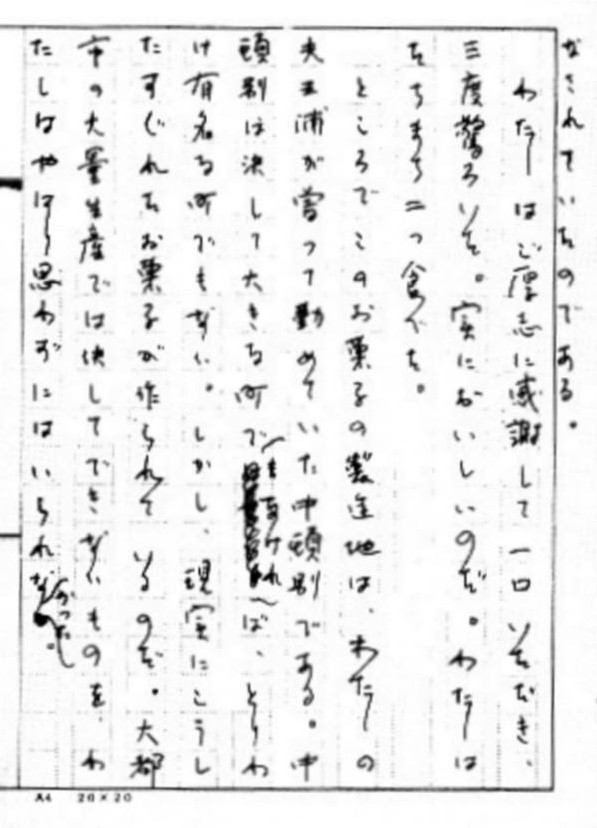 なされていたのである。
わたしはご厚志に感謝して一口いただき、
三度驚ろいた。実においしいのだ。わたしは
たちまち二つ食べた。
ところでこのお菓子の製造地は、わたしの
夫が嘗つて勤めていた中頓別である。中
頓別は決して大きな町でもなければ、とりわ
け有名な町でもない。しかし、現実にこうし
たすぐれたお菓子が作られているのだ。大都
市の大量生産では決してできないものを、わ
たしはやはり思わずにはいられなかった。
A4 20×20